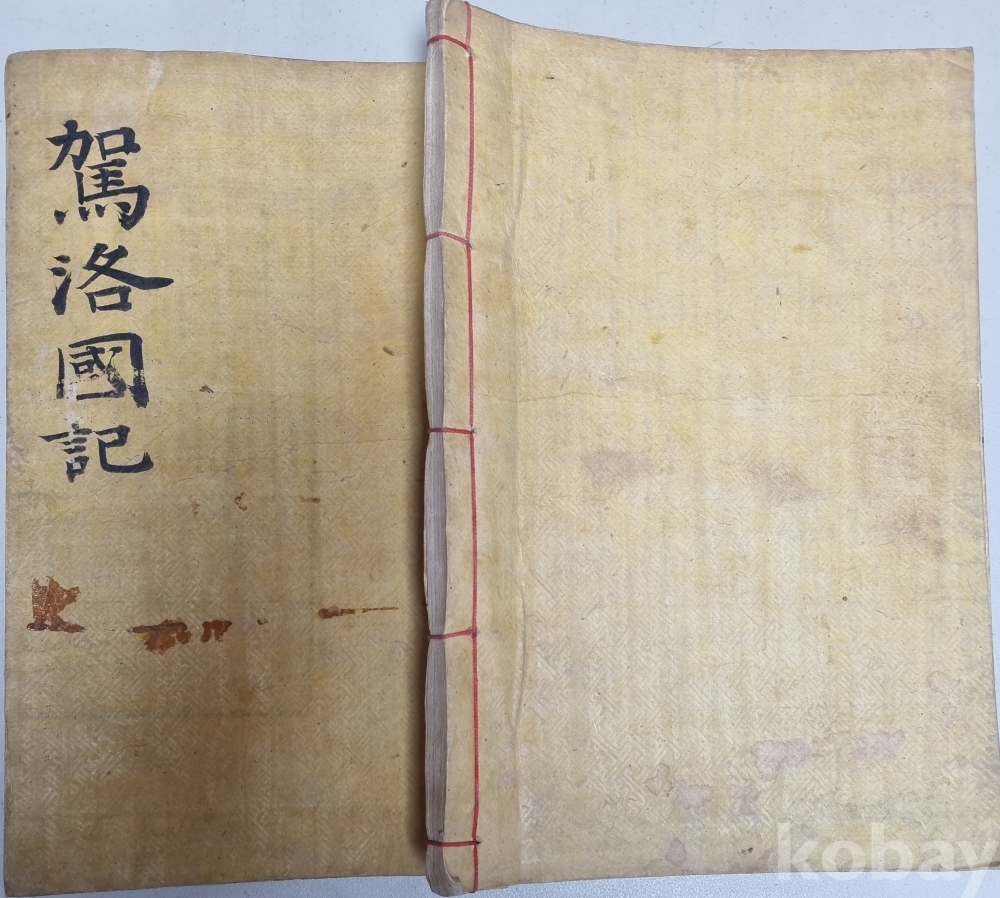 駕洛國記
kobay